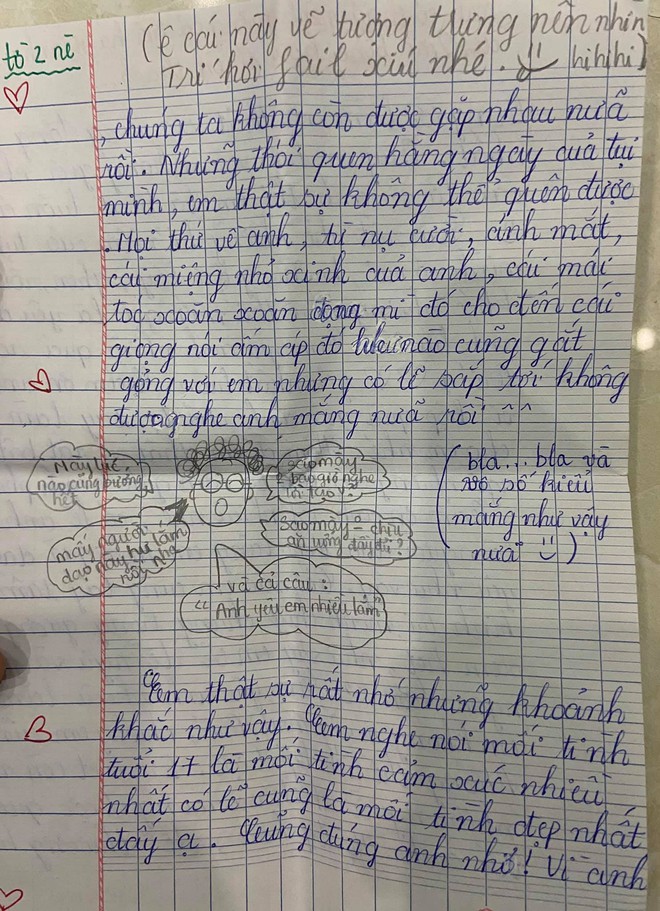 tờ 2 nè
(ê cái này vẽ tượng trưng nên nhìn
Trí hơi fail xíu nhé. hihihi)
, chúng ta không còn được gặp nhau nữã
rồi. Những thói quen hằng ngày của tụi
mình, em thật sự không thể quên được
. Mọi thứ về anh, từ nụ cười, ánh mắt,
cái miệng nhỏ xinh của anh, cái mái
tóc xoăn xoăn đó cho đến cái
giọng nói ấm áp đó lúc nào cũng gắt
gỏng với em nhưng có lẽ sắp tới không
được nghe anh mắng nữã rồi ^ ^
Mày lúc
nào cũng bướng
hết
sao mày
0 bao giờ nghe
lời tao v?
mấy người
dạo này hư lắm
rồi nha
Sao mày 0 chịu
ăn uống đầy đủ?
và cả câu:
"Anh yêu em nhiều lắm"
(bla... bla và
vô số kiểu
mắng như vậy
nữa )
Em thật sự rất nhớ những khoảnh
khắc như vậy. Em nghe nói mối tình
tuổi 17 là mối tình cảm xúc nhiều
nhất có lẽ cũng là mối tình đẹp nhất
đấy ạ. Cũng đúng anh nhở! Vì anh